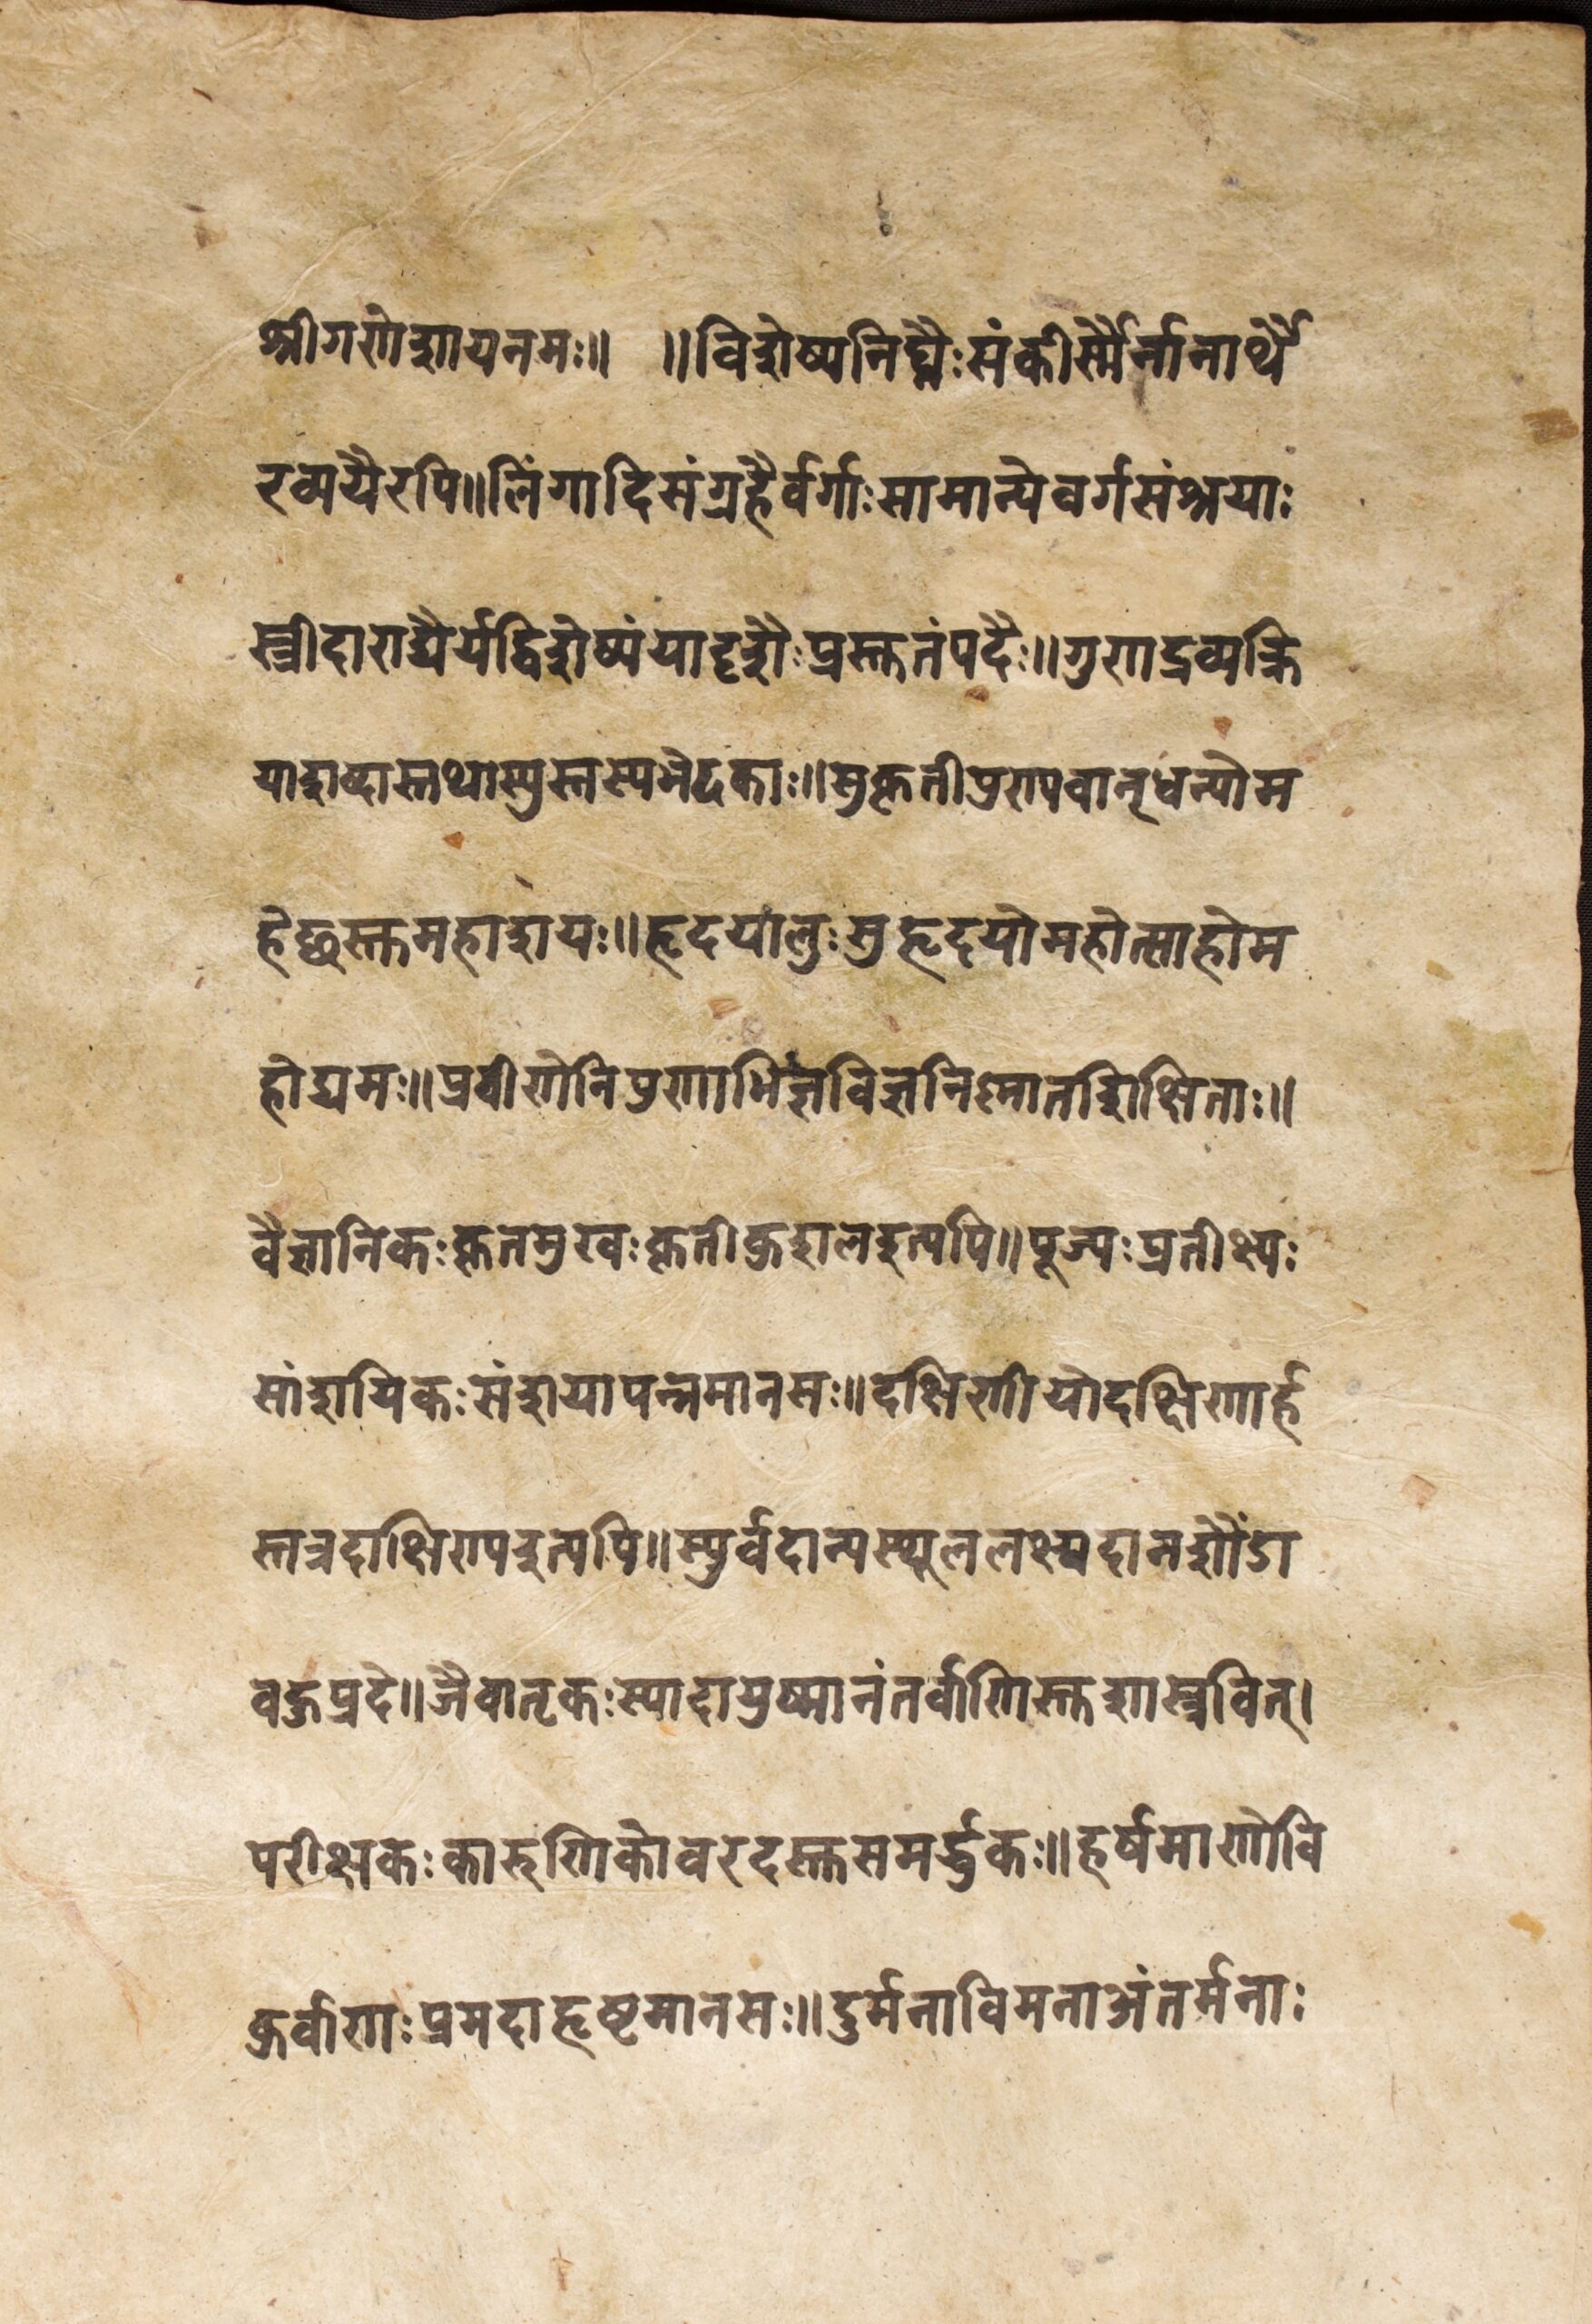 श्रीगणेशायनमः॥ ॥विशेष्यनिघ्नैःसंकीर्स्मैर्नानार्थै
रव्ययैरपि॥लिंगादिसंग्रहैर्वर्गाःसामान्येवर्गसंश्रयाः
स्त्रीदाराद्यैर्यद्विशेष्यंयादृशैःप्रस्क्ततंपदैः॥गुणाद्रव्यक्रि
याशब्दास्तथास्युस्तस्यभेदकाः॥सुकृतीपुण्यवान्धन्योम
हेछस्क्तमहाशयः॥हृदयालुःसुहृदयोमहोत्साहोम
होद्यमः॥प्रवीणेनिपुणाभिज्ञविज्ञनिश्नातशिक्षिताः॥
वैज्ञानिकःकृतमुखःकृतीकुशलइत्यपि॥पूज्यःप्रतीक्ष्यः
सांशयिकःसंशयापन्नमानसः॥दक्षिणीयोदक्षिणार्ह
स्तत्रदाक्षिण्यइत्यपि॥स्युर्वदान्यस्थूललक्ष्यदानशौंडा
वहुप्रदे॥जैवातृकःस्यादायुष्मानंतर्वाणिस्क्तशास्त्रवित्।
परीक्षकःकारुणिकोवरदस्क्तसमर्द्धुकः॥हर्षमाणोवि
कुर्वाणःप्रमदाहृष्टमानसः॥दुर्मनाविमनाअंतर्मनाः